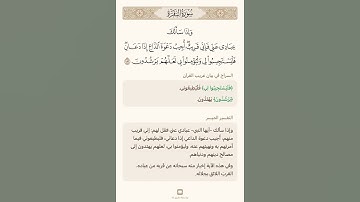 سُورَةُ البَقَرَةِ
وَإِذَا سَأَلَكَ
عِبَادِي عَنِّي فَإِنِّي قَرِيبٌ أُجِيبُ دَعْوَةَ الدَّاعِ إِذَا دَعَانِ
فَلْيَسْتَجِيبُوا لِي وَلْيُؤْمِنُوا بِي لَعَلَّهُمْ يَرْشُدُونَ
السراج في بيان غريب القرآن
﴿فَلْيَسْتَجِيبُوا لِي﴾ فَلْيُطِيعُونِي.
﴿يَرْشُدُونَ﴾ يَهْتَدُونَ.
التفسير الميسر
وإذا سألك -أيها النبي- عبادي عني فقل لهم: إني قريب
منهم، أجيب دعوة الداعي إذا دعاني، فليطيعوني فيما
أمرتهم به ونهيتهم عنه، وليؤمنوا بي، لعلهم يهتدون إلى
مصالح دينهم ودنياهم.
وفي هذه الآية إخبار منه سبحانه عن قربه من عباده،
القرب اللائق بجلاله.